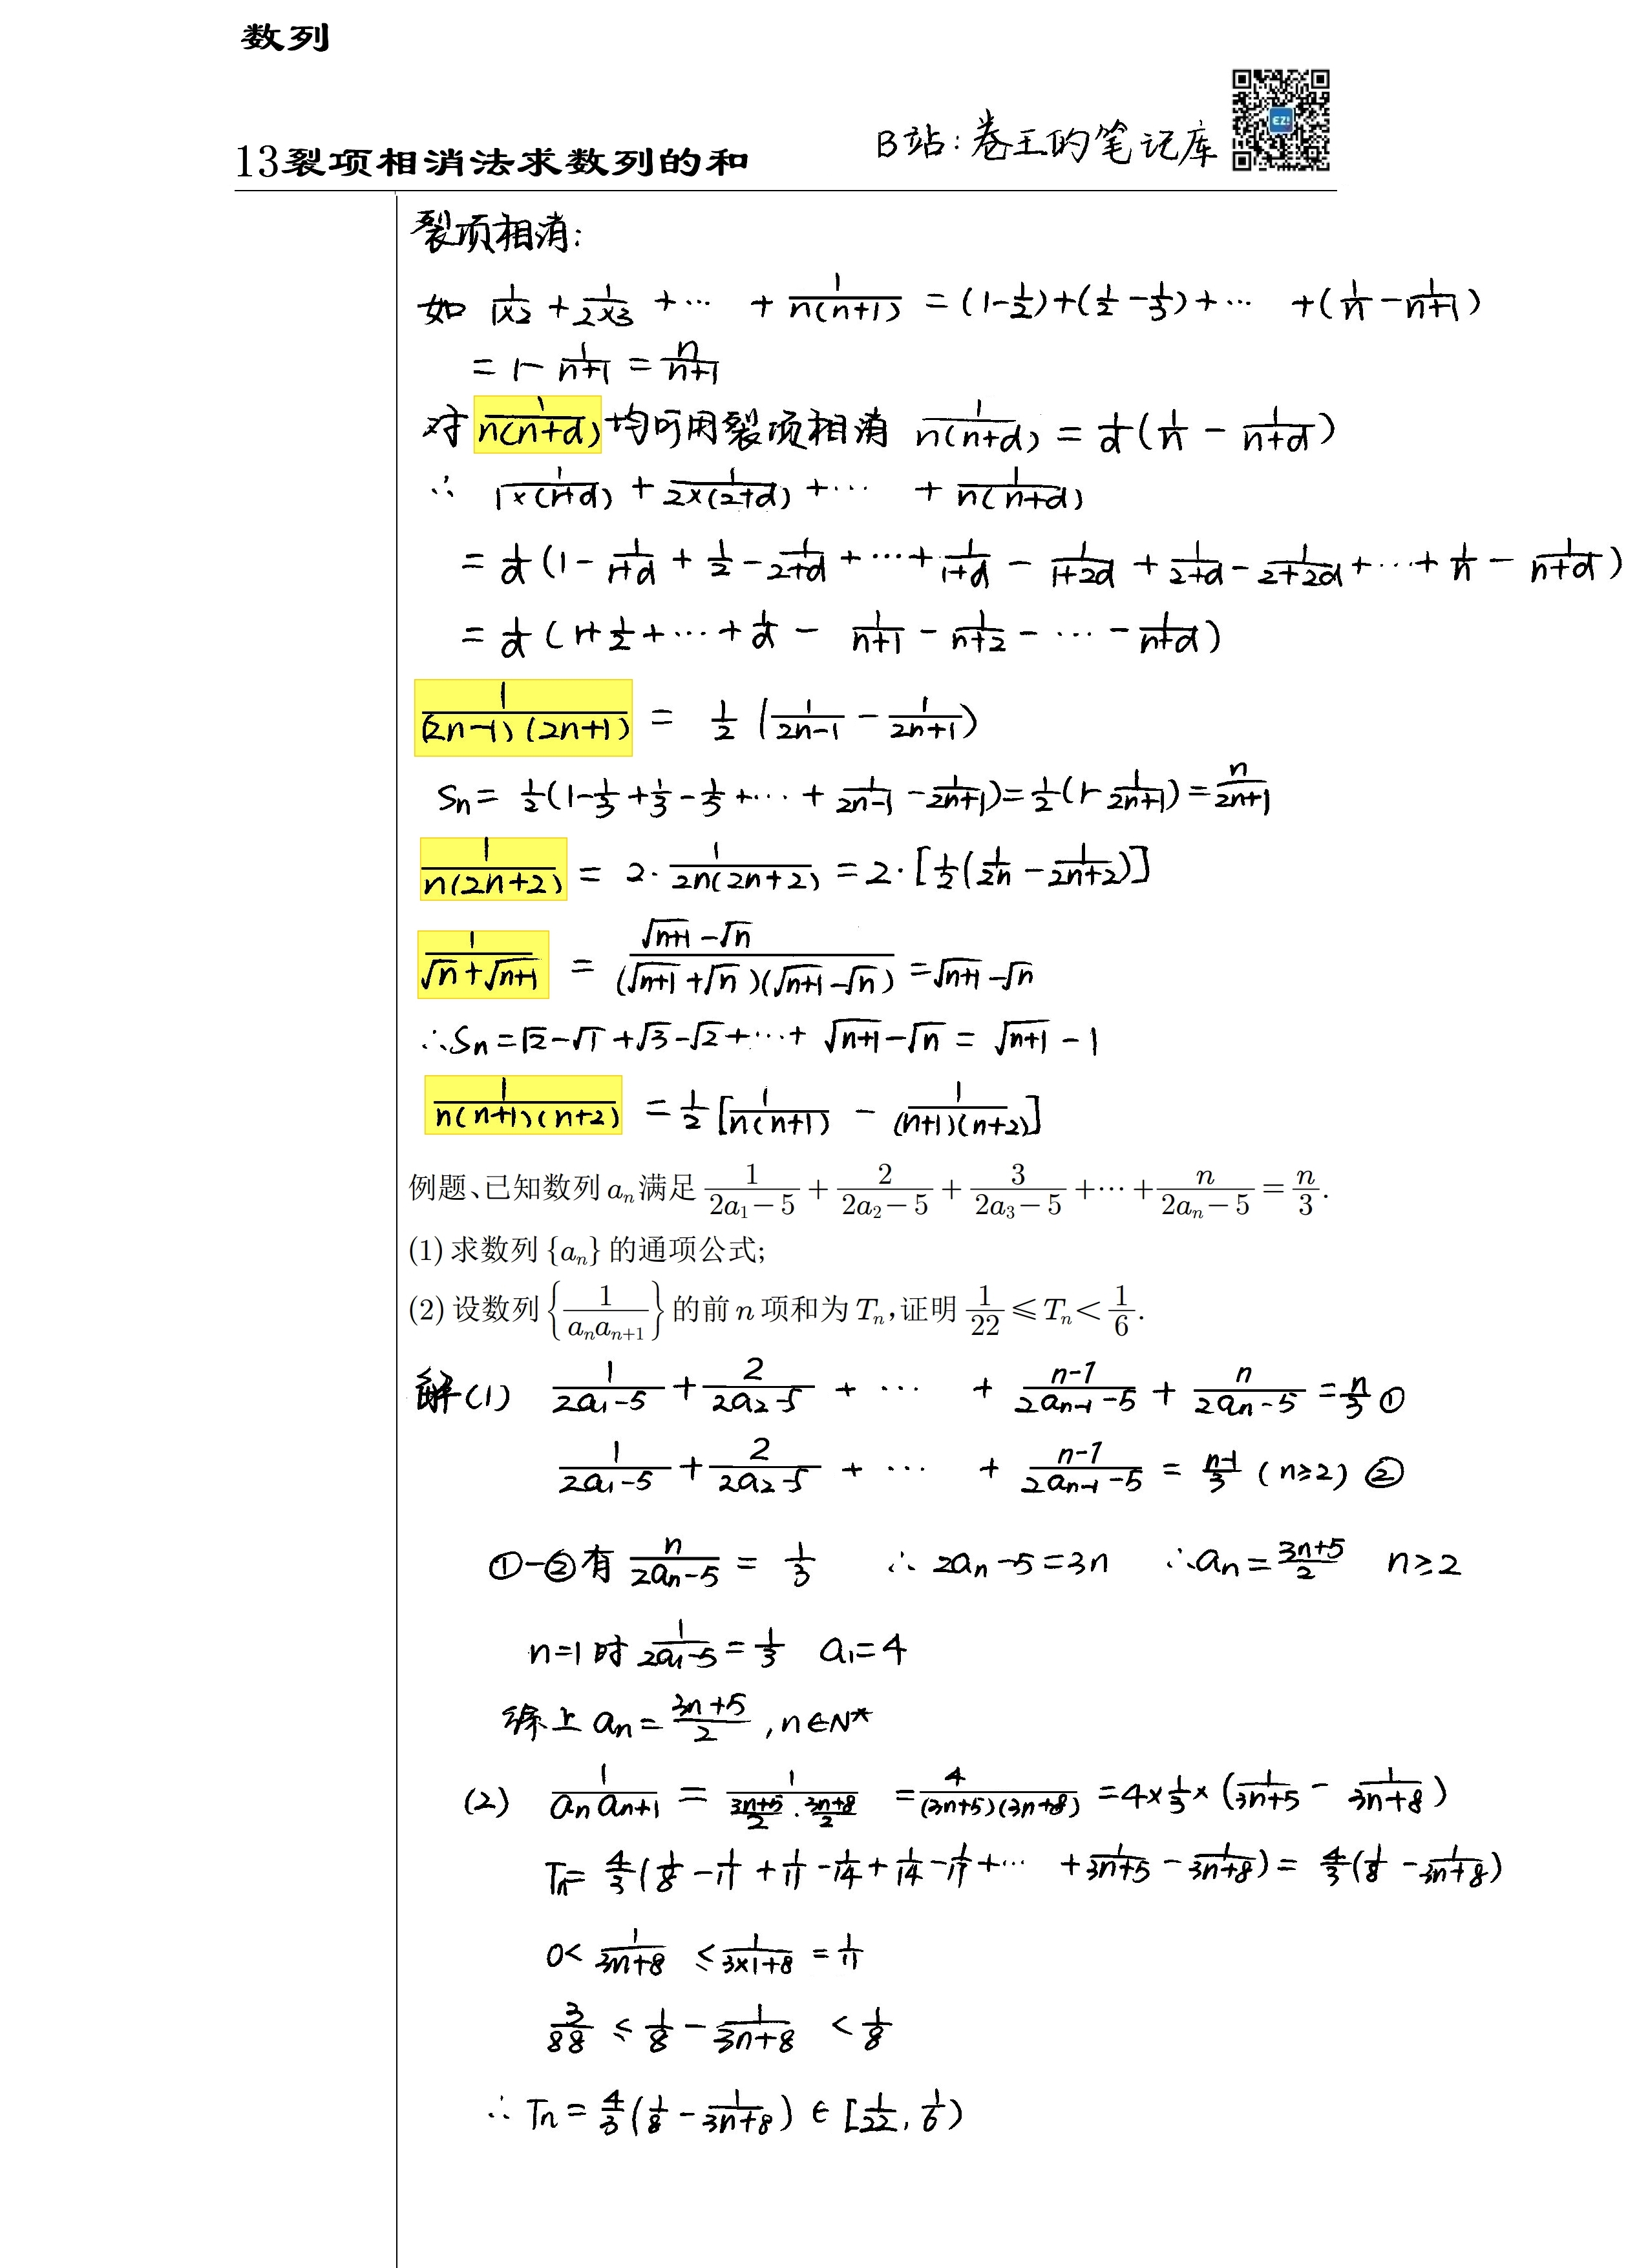 数列
B站:卷王的笔记库
EZ!
13裂项相消法求数列的和
裂项相消:
如 1/(1×2) + 1/(2×3) + ⋯ + 1/(n(n+1)) = (1-1/2)+(1/2-1/3)+⋯ +(1/n-1/(n+1))
= 1- 1/(n+1) = n/(n+1)
对 1/(n(n+d)) 均可用裂项相消 1/(n(n+d)) = 1/d(1/n - 1/(n+d))
∴ 1/(1×(1+d)) + 1/(2×(2+d)) +⋯ + 1/(n(n+d))
= 1/d (1 - 1/(1+d) + 1/2 - 1/(2+d) +⋯+ 1/(1+d) - 1/(1+2d) + 1/(2+d) - 1/(2+2d) +⋯+ 1/n - 1/(n+d))
= 1/d (1+1/2+⋯+1/d - 1/(n+1) - 1/(n+2) - ⋯ - 1/(n+d))
1/((2n-1)(2n+1)) = 1/2 (1/(2n-1) - 1/(2n+1))
Sn= 1/2(1-1/3+1/3-1/5+⋯+ 1/(2n-1) - 1/(2n+1))=1/2(1-1/(2n+1))=n/(2n+1)
1/(n(2n+2)) = 2· 1/(2n(2n+2)) =2·[1/2(1/(2n) - 1/(2n+2))]
1/(√n+√(n+1)) = (√(n+1)-√n)/((√(n+1)+√n)(√(n+1)-√n)) =√(n+1)-√n
∴Sn=√2-√1+√3-√2+⋯+ √(n+1)-√n = √(n+1) - 1
1/(n(n+1)(n+2)) =1/2[1/(n(n+1)) - 1/((n+1)(n+2))]
例题、已知数列 aₙ 满足 1/(2a₁-5) + 2/(2a₂-5) + 3/(2a₃-5) +⋯+ n/(2aₙ-5) = n/3.
(1) 求数列 {aₙ} 的通项公式;
(2) 设数列 {1/(aₙaₙ₊₁)} 的前 n 项和为 Tₙ,证明 1/22 ⩽ Tₙ < 1/6.
解(1) 1/(2a₁-5) + 2/(2a₂-5) + ⋯ + (n-1)/(2aₙ₋₁-5) + n/(2aₙ-5) = n/3 ①
1/(2a₁-5) + 2/(2a₂-5) + ⋯ + (n-1)/(2aₙ₋₁-5) = (n-1)/3 (n≥2) ②
①-②有 n/(2aₙ-5) = 1/3 ∴ 2aₙ-5=3n ∴aₙ=(3n+5)/2 n≥2
n=1时 1/(2a₁-5)=1/3 a₁=4
综上 aₙ=(3n+5)/2 ,n∈N*
(2) 1/(aₙaₙ₊₁) = 1/((3n+5)/2·(3n+8)/2) =4/((3n+5)(3n+8)) =4×1/3×(1/(3n+5) - 1/(3n+8))
Tn= 4/3(1/8-1/11+1/11-1/14+1/14-1/17+⋯ +1/(3n+5)-1/(3n+8))= 4/3(1/8-1/(3n+8))
0< 1/(3n+8) ≤ 1/(3×1+8) = 1/11
3/88 ≤ 1/8 - 1/(3n+8) < 1/8
∴ Tn= 4/3(1/8-1/(3n+8)) ∈ [1/22, 1/6)